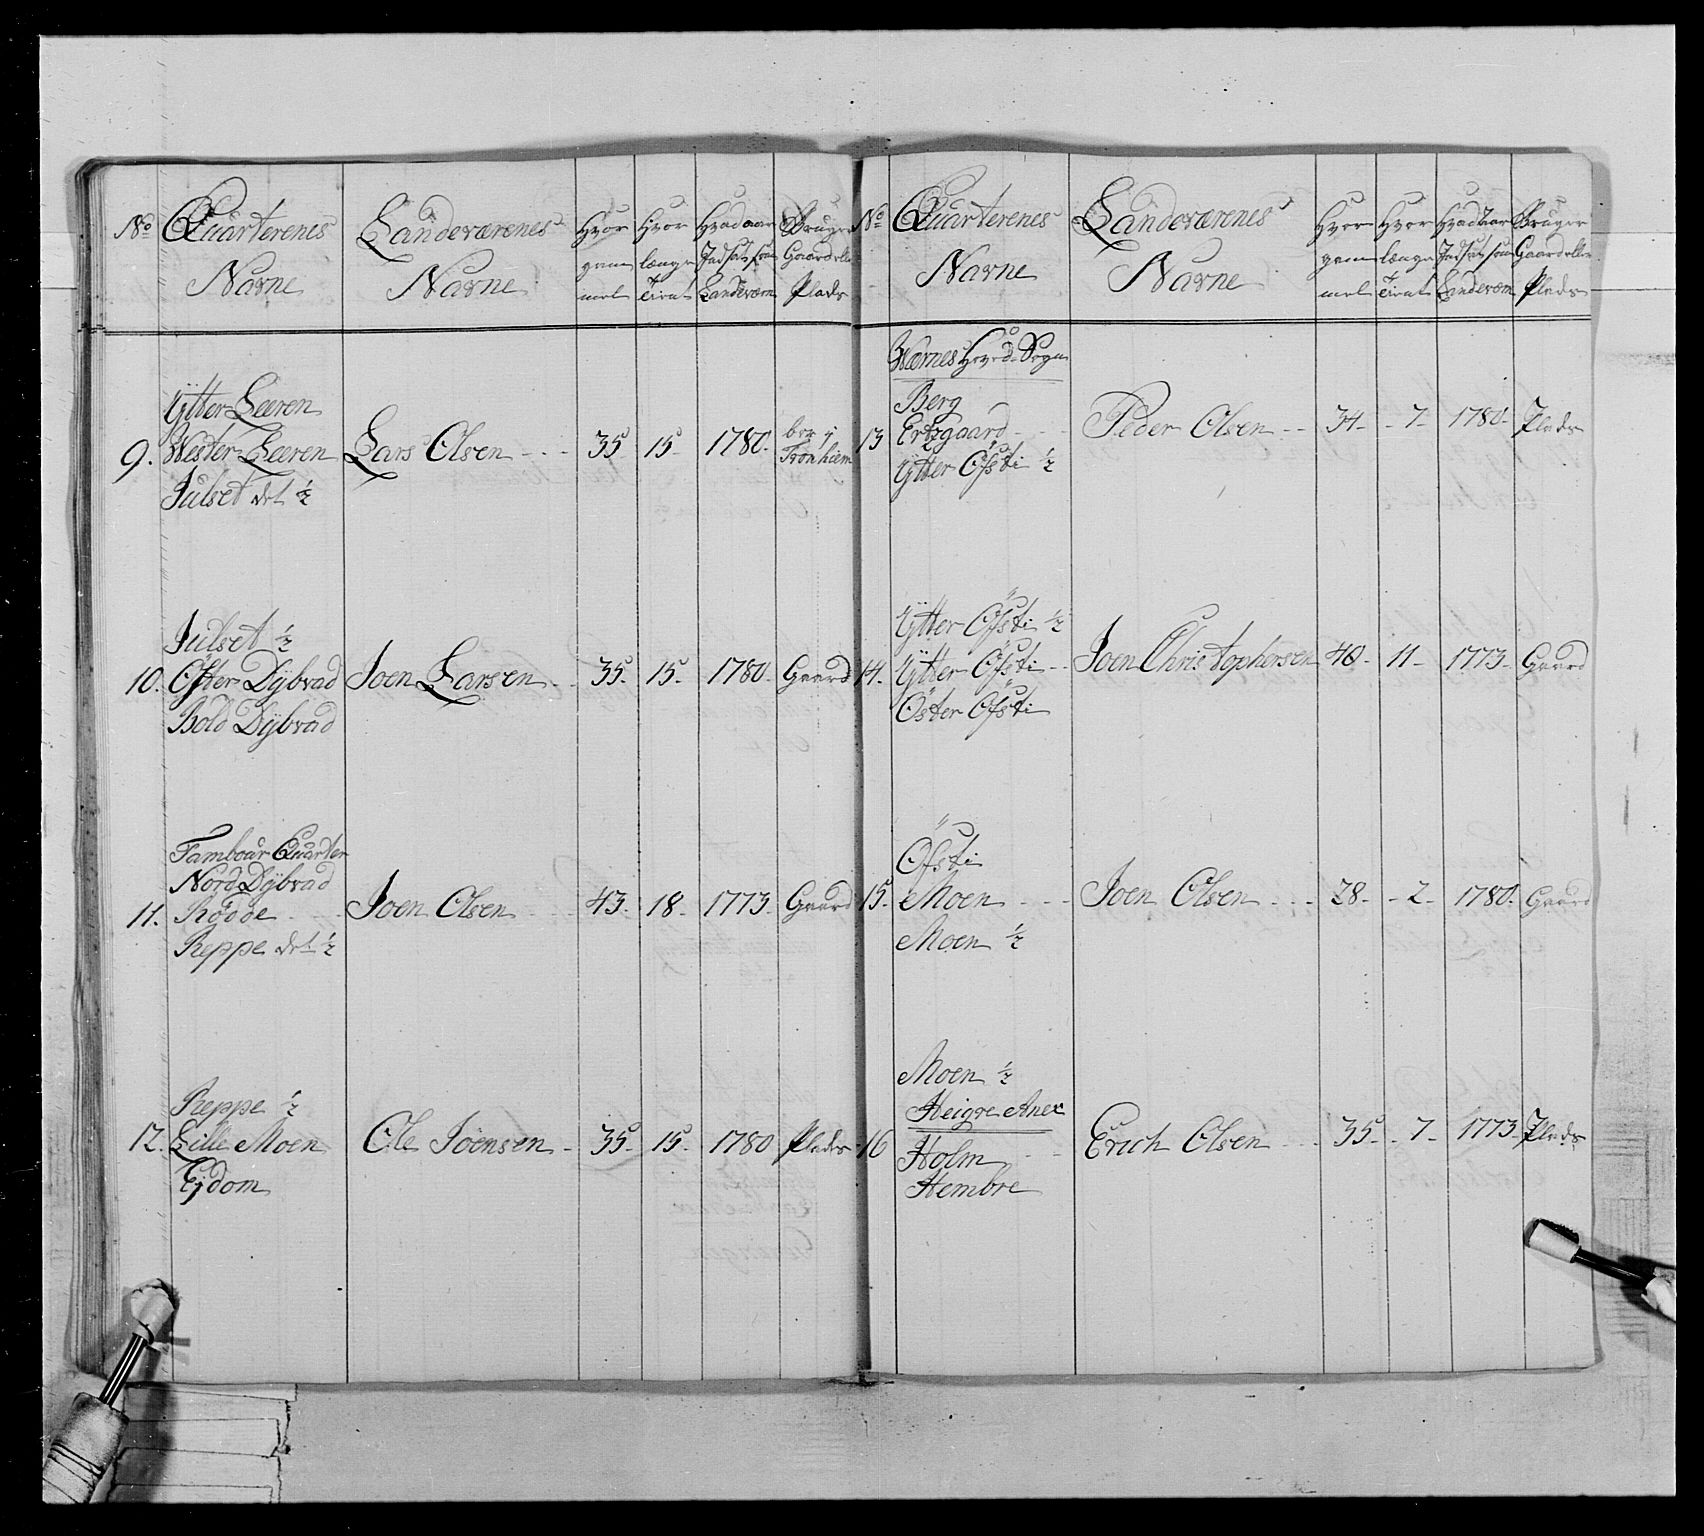 No
Quarterenes
Navne
Landeværenes
Navne
Hvor
gam
mel
Hvor
længe
Tient
Hvad aar
Indsat som
Landværn
Bruger
Gaard eller
Plads
9.
Ytter Leeren
Wester Leeren
Julset det ½
Lars Olsen
35
15
1780.
boer i
Tronhiem
10.
Julset ½
Öfter Dÿbvad
Bold Dÿbvad
Joen Larsen
35.
15.
1780.
Gaard
11.
Tambour Quarter
Nord Dÿbvad
Rödde
Reppe det ½
Joen Olsen
43.
18.
1773.
Gaard
12.
Reppe ½
Lille Moen
Ejdom
Ole Joensen
35.
15.
1780
Plads
No
Quarterenes
Navne
Landeværenes
Navne
Hvor
gam
mel
Hvor
længe
Tient
Hvad aar
Indsat som
Landeværn
Bruger
Gaard eller
Plads
13
Wærnes Hoved Sogn
Berg
Ertzgaard
Ytter Öfsti ½
Peder Olsen
34
7
1780.
Plads
14.
Ytter Öfsti ½
Ytter Öfsti
Öster Öfsti
Joen Christophersen
40.
11
1773.
Gaard
15.
Öfsti
Moen
Moen ½
Joen Olsen
28.
2
1780.
Gaard
16
Moen ½
Heigre Anex
Holm
Hembre
Erich Olsen
35
7
1773.
Plads